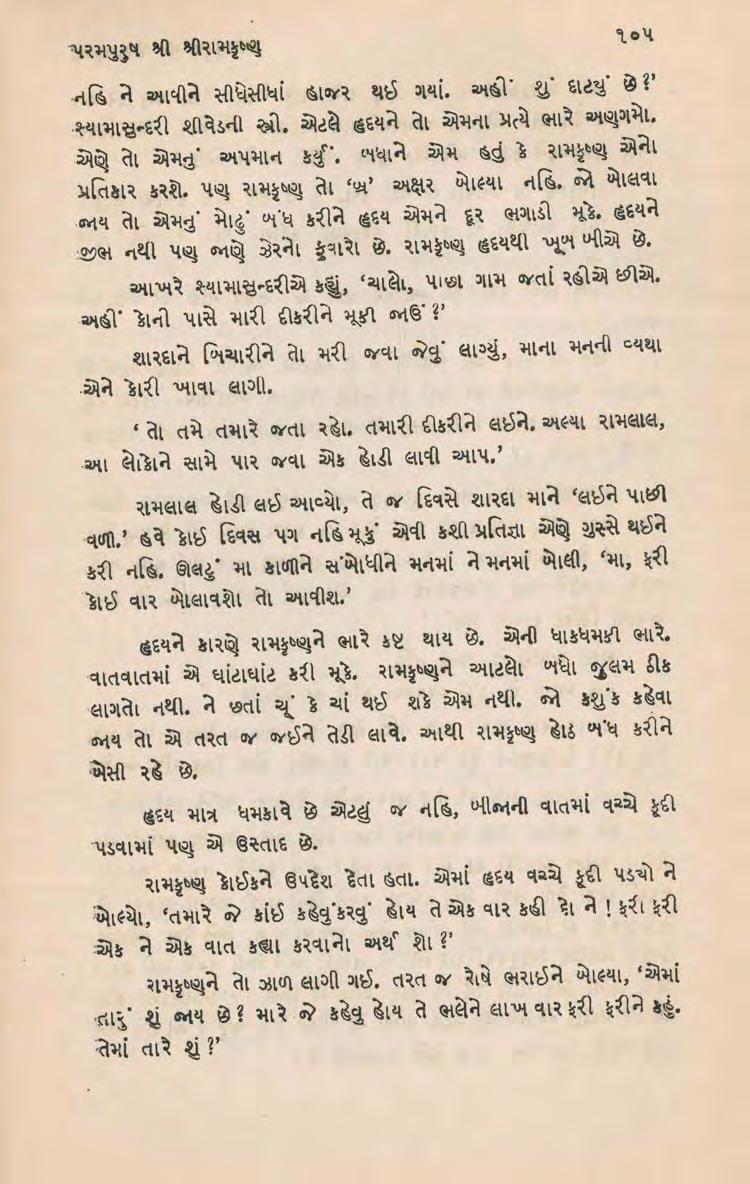 પરમપુરુષ શ્રી શ્રીરામકૃષ્ણ
૧૦૫
નહિ ને આવીને સીધેસીધાં હાજર થઈ ગયાં. અહીં શું દાટયું છે?'
શ્યામાસુન્દરી શીવેડની સ્ત્રી. એટલે હૃદયને તો એમના પ્રત્યે ભારે અણગમો.
એણે તો એમનું અપમાન કર્યું. બધાને એમ હતું કે રામકૃષ્ણ એનો
પ્રતિકાર કરશે. પણ રામકૃષ્ણ તો ‘બ્ર’ અક્ષર બોલ્યા નહિ. જો બોલવા
જાય તો એમનું મોઢું બંધ કરીને હૃદય એમને દૂર ભગાડી મૂકે. હૃદયને
જીભ નથી પણ જાણે ઝેરનો ફુવારો છે. રામકૃષ્ણ હૃદયથી ખૂબ બીએ છે.
આખરે શ્યામાસુન્દરીએ કહ્યું, ‘ચાલો, પાછા ગામ જતાં રહીએ છીએ.
અહીં કોની પાસે મારી દીકરીને મૂકી જાઉં?'
શારદાને બિચારીને તો મરી જવા જેવું લાગ્યું, માના મનની વ્યથા
એને કોરી ખાવા લાગી.
‘તો તમે તમારે જતા રહો. તમારી દીકરીને લઈને. અલ્યા રામલાલ,
આ લોકોને સામે પાર જવા એક હોડી લાવી આપ.’
રામલાલ હોડી લઈ આવ્યો, તે જ દિવસે શારદા માને ‘લઈને પાછી
વળી.’ હવે કોઈ દિવસ પગ નહિ મૂકું એવી કશી પ્રતિજ્ઞા એણે ગુસ્સે થઈને
કરી નહિ. ઊલટું મા કાળીને સંબોધીને મનમાં ને મનમાં બોલી, ‘મા, ફરી
કોઈ વાર બોલાવશો તો આવીશ.’
હૃદયને કારણે રામકૃષ્ણને ભારે કષ્ટ થાય છે. એની ધાકધમકી ભારે.
વાતવાતમાં એ ઘાંટાઘાંટ કરી મૂકે. રામકૃષ્ણને આટલો બધો જુલમ ઠીક
લાગતો નથી. ને છતાં ચૂં કે ચાં થઈ શકે એમ નથી. જો કશુંક કહેવા
જાય તો એ તરત જ જઈને તેડી લાવે. આથી રામકૃષ્ણ હોઠ બંધ કરીને
બેસી રહે છે.
હૃદય માત્ર ધમકાવે છે એટલું જ નહિ, બીજાની વાતમાં વચ્ચે કૂદી
પડવામાં પણ એ ઉસ્તાદ છે.
રામકૃષ્ણ કોઈકને ઉપદેશ દેતા હતા. એમાં હૃદય વચ્ચે કૂદી પડયો ને
બોલ્યો, ‘તમારે જે કાંઈ કહેવુંકરવું હોય તે એક વાર કહી દો ને! ફરી ફરી
એક ને એક વાત કહ્યા કરવાનો અર્થ શો?'
રામકૃષ્ણને તો ઝાળ લાગી ગઈ. તરત જ રોષે ભરાઈને બોલ્યા, ‘એમાં
તારું શું જાય છે? મારે જે કહેવુ હોય તે ભલેને લાખ વાર ફરી ફરીને કહું.
તેમાં તારે શું?'